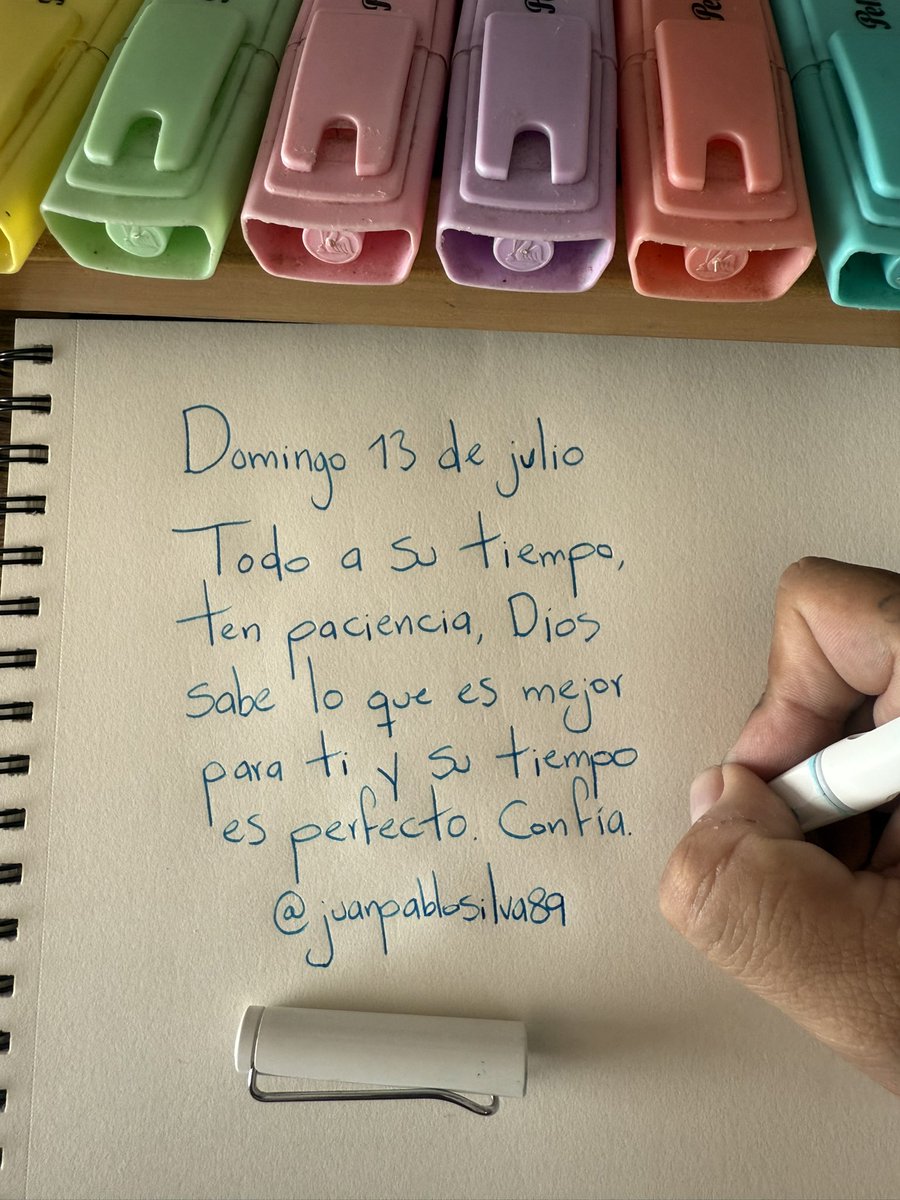 Domingo 13 de julio
Todo a su tiempo,
ten paciencia, Dios
sabe lo que es mejor
para ti y su tiempo
es perfecto. Confía.
@juanpablosilva89